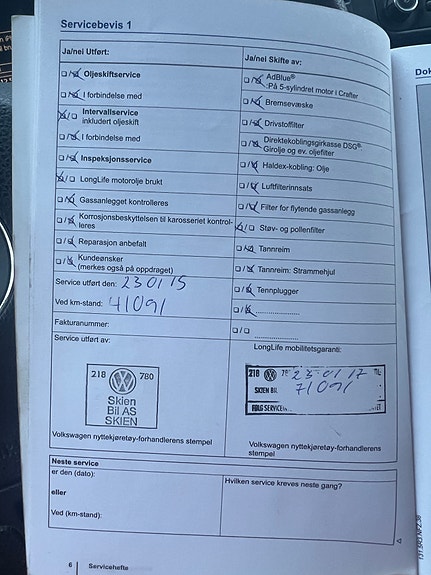 Servicebevis 1
Ja/nei Utført:
Ja/nei Skifte av:
Oljeskiftservice
AdBlue®
:På 5-sylindret motor i Crafter
I forbindelse med
Bremsevæske
Intervallservice
inkludert oljeskift
Drivstoffilter
I forbindelse med
Direktekoblingsgirkasse DSG®:
Girolje og ev. oljefilter
Inspeksjonsservice
Haldex-kobling: Olje
LongLife motorolje brukt
Luftfilterinnsats
Gassanlegget kontrolleres
Filter for flytende gassanlegg
Korrosjonsbeskyttelsen til karosseriet kontrol-
leres
Støv- og pollenfilter
Reparasjon anbefalt
Tannreim
Kundeønsker
(merkes også på oppdraget)
Tannreim: Strammehjul
Service utført den: 23 01 15
Tennplugger
Ved km-stand: 41091
Fakturanummer:
Service utført av:
LongLife mobilitetsgaranti:
218 780
Skien
Bil AS
SKIEN
218
23-01/17
SKIEN BIL
71091
FØLG SERVICEN
Volkswagen nyttekjøretøy-forhandlerens stempel
Volkswagen nyttekjøretøy-forhandlerens
stempel
Neste service
er den (dato):
Hvilken service kreves neste gang?
eller
Ved (km-stand):
6 Servicehefte